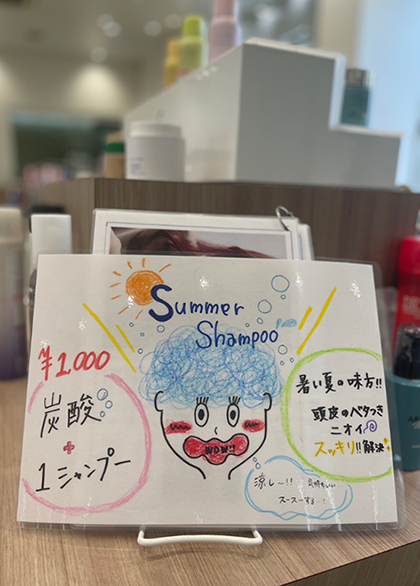 Summer
Shampoo
¥1,000
炭酸
+
1シャンプー
WOW!!
暑い夏の味方!!
頭皮のベタつき
ニオイ
スッキリ!!解決
涼し〜!!
気持ちいい
スースーする〜!